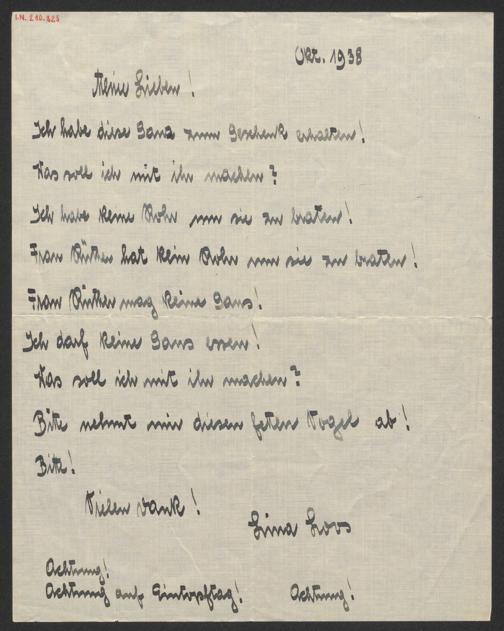 I.N. 210.525
Okt. 1938
Meine Lieben!
Ich habe diese Gans zum Geschenk erhalten!
Was soll ich mit ihr machen?
Ich habe keine Rohr um sie zu braten!
Frau Rüther hat kein Rohr um sie zu braten!
Frau Rüther mag keine Gans!
Ich darf keine Gans essen!
Was soll ich mit ihr machen?
Bitte nehmt mir diesen feten Vogel ab!
Bitte!
Vielen Dank!
Lina Loos
Achtung!
Achtung auf Eintopftag! Achtung!